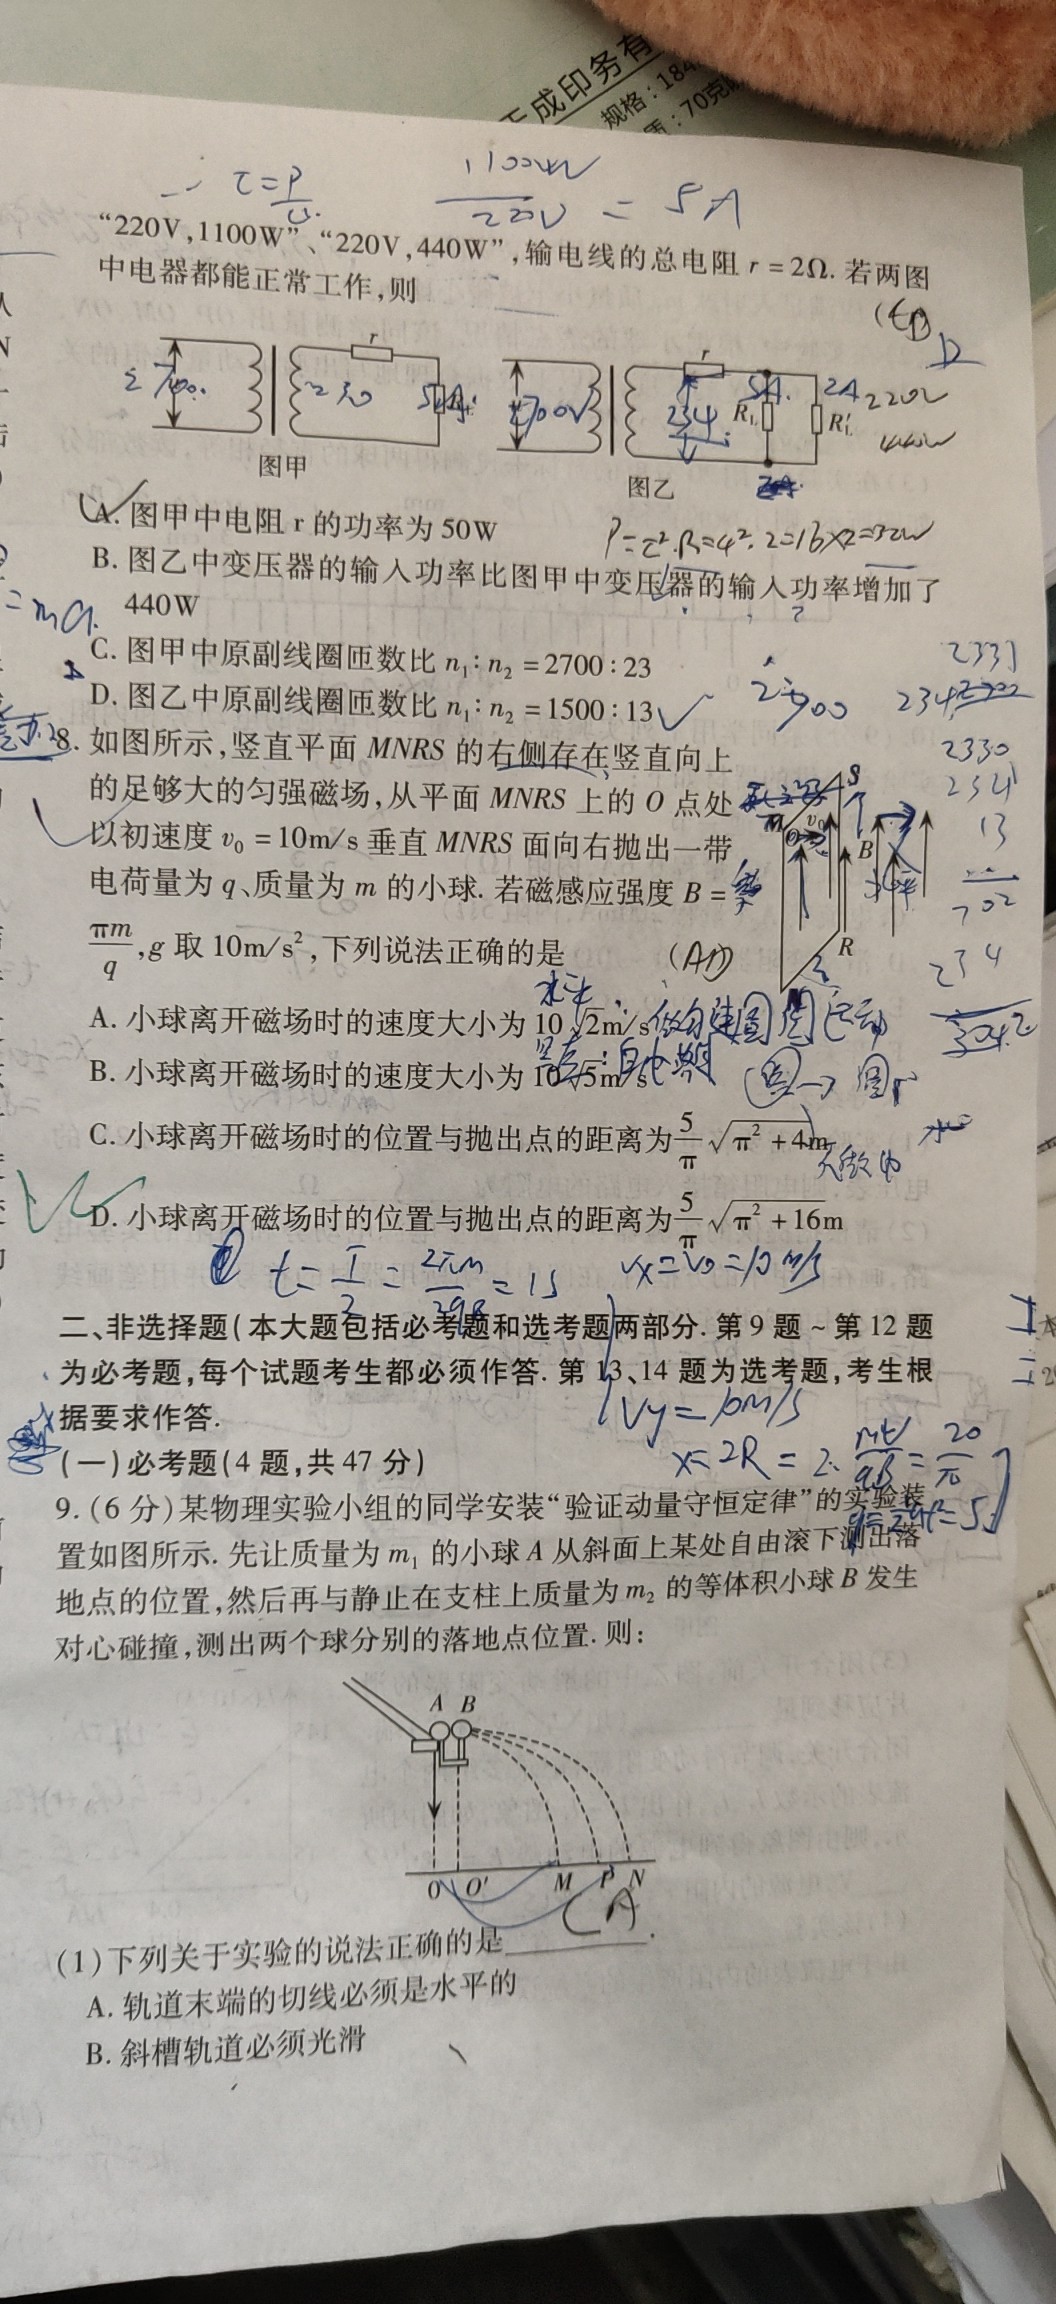 成印务有
规格:184
质:70克
I=P/U
1100W/220V = 5A
“220V,1100W”、“220V,440W”,输电线的总电阻 r=2Ω. 若两图
中电器都能正常工作,则
D
r
230
5A
图甲
2700V
r
234
5A
R_L
2A
R_L'
220V
440W
图乙
A. 图甲中电阻 r 的功率为 50W
P=I².R=4².2=16×2=32W
B. 图乙中变压器的输入功率比图甲中变压器的输入功率增加了
440W
C. 图甲中原副线圈匝数比 n₁:n₂=2700:23
D. 图乙中原副线圈匝数比 n₁:n₂=1500:13
2700
234
8. 如图所示,竖直平面 MNRS 的右侧存在竖直向上
的足够大的匀强磁场,从平面 MNRS 上的 O 点处
以初速度 v₀=10m/s 垂直 MNRS 面向右抛出一带
电荷量为 q、质量为 m 的小球. 若磁感应强度 B=
πm/q,g 取 10m/s²,下列说法正确的是
(AD)
S
M
O
v₀
B
R
2330
234
13
702
234
3042
水平:做匀速圆周运动
A. 小球离开磁场时的速度大小为 10√2m/s
B. 小球离开磁场时的速度大小为 10√5m/s
C. 小球离开磁场时的位置与抛出点的距离为 5/π √(π²+4)m
D. 小球离开磁场时的位置与抛出点的距离为 5/π √(π²+16)m
t=T/2=2πm/2qB=1s
Vx=V₀=10m/s
二、非选择题(本大题包括必考题和选考题两部分. 第 9 题~第 12 题
为必考题,每个试题考生都必须作答. 第 13、14 题为选考题,考生根
据要求作答.
Vy=10m/s
(一)必考题(4 题,共 47 分)
x=2R=2·mv/qB=20/π
9. (6 分)某物理实验小组的同学安装“验证动量守恒定律”的实验装
置如图所示. 先让质量为 m₁ 的小球 A 从斜面上某处自由滚下测出落
地点的位置,然后再与静止在支柱上质量为 m₂ 的等体积小球 B 发生
对心碰撞,测出两个球分别的落地点位置. 则:
A B
O O' M P N
A
(1)下列关于实验的说法正确的是________.
A. 轨道末端的切线必须是水平的
B. 斜槽轨道必须光滑